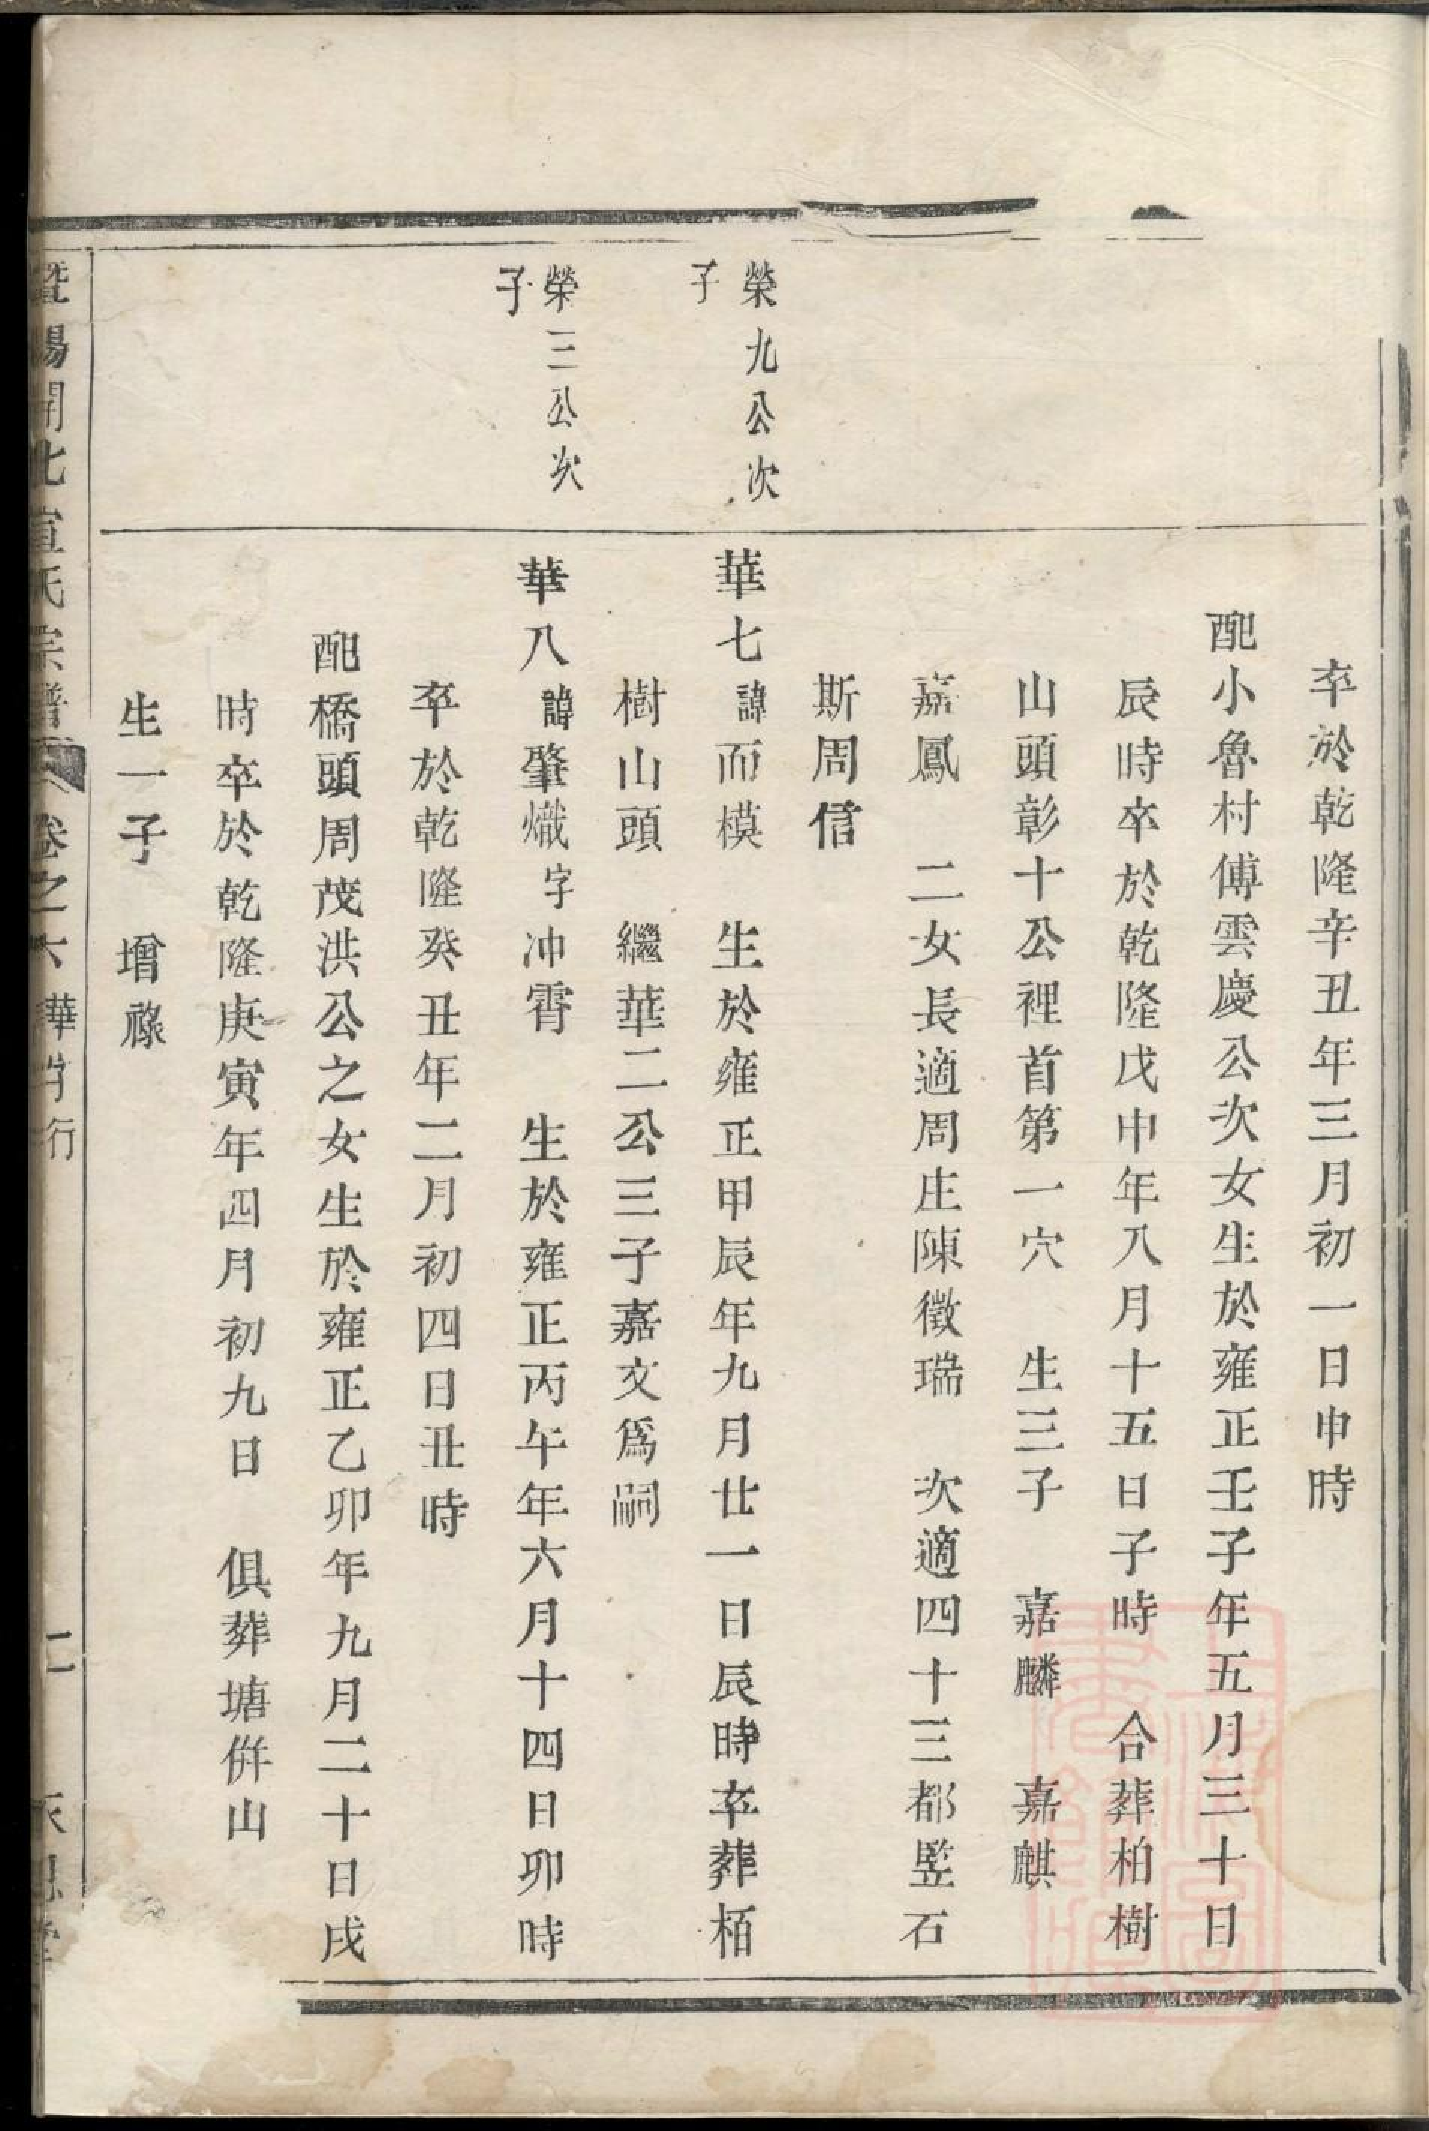 卒於乾隆辛丑年三月初一日申時
配小魯村傅雲慶公次女生於雍正壬子年五月三十日
辰時卒於乾隆戊申年八月十五日子時 合葬柏樹
山頭彰十公裡首第一穴 生三子 嘉麟 嘉麒
嘉鳳 二女長適周庄陳徵瑞 次適四十三都竪石
斯周信
榮九公次
子
華七諱而模 生於雍正甲辰年九月廿一日辰時卒葬栢
樹山頭 繼華二公三子嘉文爲嗣
榮三公次
子
華八諱肇熾字冲霄 生於雍正丙午年六月十四日卯時
卒於乾隆癸丑年二月初四日丑時
配橋頭周茂洪公之女生於雍正乙卯年九月二十日戌
時卒於乾隆庚寅年四月初九日 俱葬塘併山
生一子 增祿
暨陽開北宣氏宗譜 卷之六 華字行